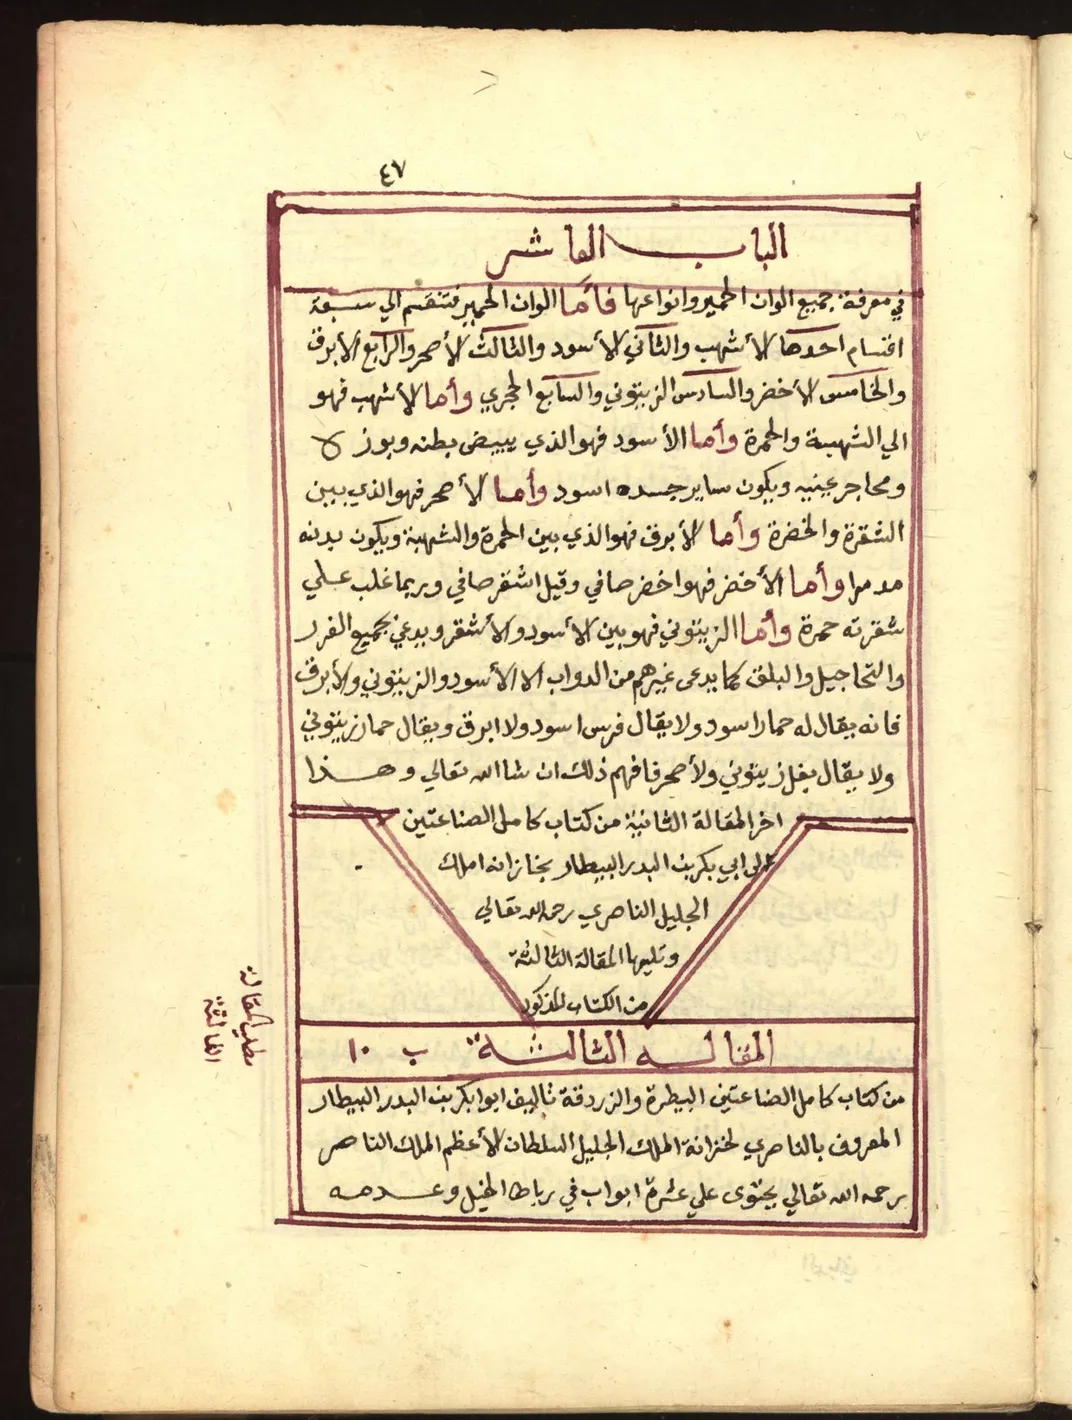 ٤٧
الباب العاشر
في معرفة جميع الوان الحمير وانواعها فأما الوان الحمير فتنقسم الي سبعة
اقسام احدها الأشهب والثاني الأسود والثالث الأصحر والرابع الأبرق
والخامس الأخضر والسادس الزيتوني والسابع الحجري وأما الأشهب فهو
الي الشهبة والحمرة وأما الأسود فهو الذي يبيض بطنه وبوزه
ومحاجر عينيه ويكون ساير جسده اسود وأما الأصحر فهو الذي بين
الشقرة والخضرة وأما الأبرق فهو الذي بين الحمرة والشهبة ويكون بدنه
مدمرا وأما الأخضر فهو اخضر صافي وقيل اشقر صافي وربما غلب علي
شقرته حمرة وأما الزيتوني فهو بين الأسود والأشقر ويدعي بجميع الغرر
والتحاجيل والبلق كما يدعى غيرهم من الدواب الا الأسود والزيتوني والأبرق
فانه يقال له حمار اسود ولا يقال فرس اسود ولا ابرق ويقال حمار زيتوني
ولا يقال بغل زيتوني ولأصحر فافهم ذلك ان شاالله تعالي وهذا
اخر المقالة الثانية من كتاب كامل الصناعتين
لابي بكر بن البدر البيطار بخازانه املك
الجليل الناصري رحمه الله تعالي
وتليها المقالة الثالثة
من الكتاب المذكور
المقاله الثالثة ب ١٠
من كتاب كامل الصناعتين البيطرة والزردقة تاليف ابوا بكر بن البدر البيطار
المعروف بالناصري لخزانة الملك الجليل السلطان الأعظم الملك الناصر
رحمه الله تعالي يحتوى علي عشرة ابواب في رباط الخيل وعدمه
مطلب المقالة
الثالثة